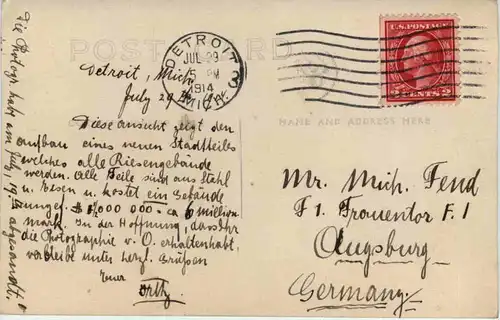 POST CARD
DETROIT, MICH.
JUL 29
5 PM
1914
3
U.S. POSTAGE
2 CENTS 2
NAME AND ADDRESS HERE
Detroit, Mich.
July 29
Diese Ansicht zeigt den
aufbau eines neuen Stadtteiles
welches alle Riesengebände
werden. Alle Teile sind aus Stahl
u. Eesen u. kostet ein Gebände
$ 1/000 000 = ca 6 million
mark. In der Hoffnung, dass Ihr
die Photographie v. O. erhalten habt,
verbleibe unter herzl. Grüßen
Euer
Die Photogr. habe am July, 19. abgesandt.
Mr. Mich. Fend
F 1. Frauentor F. 1
Augsburg
Germany.